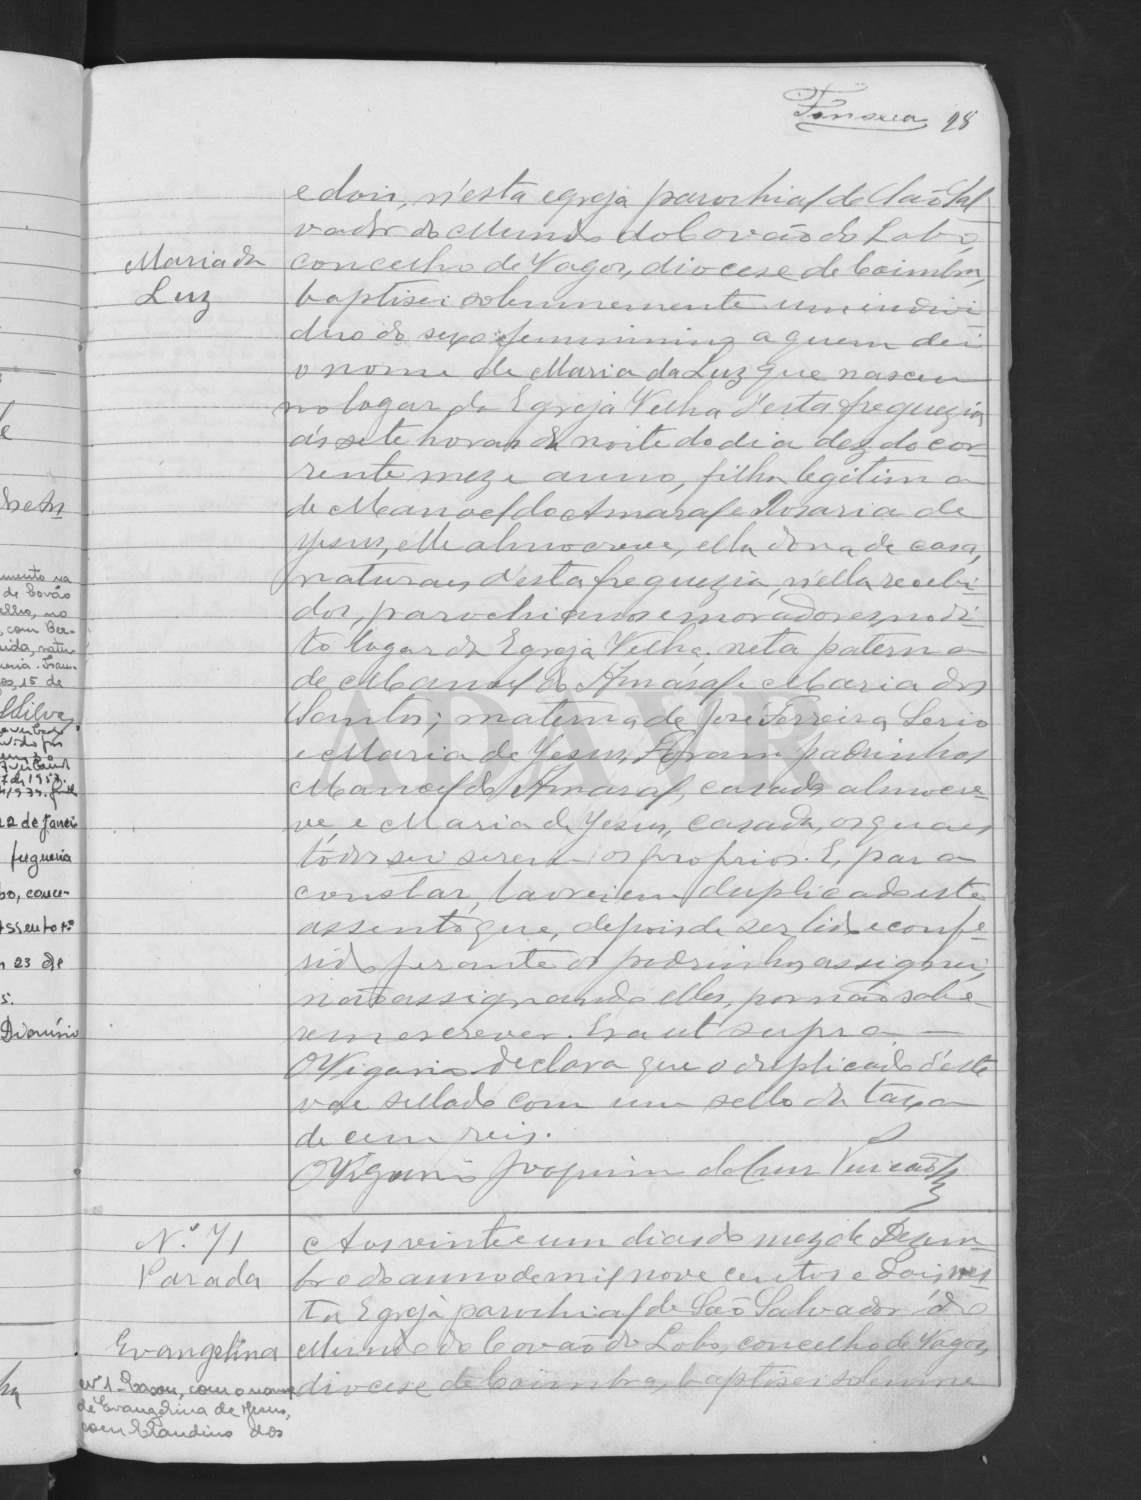 Fonseca 28
e dois, n'esta egreja parochial de São Sal
vador do Mundo do Covão do Lobo,
concelho de Vagos, diocese de Coimbra,
baptisei solemnemente um indivi-
duo do sexo feminino a quem dei
o nome de Maria da Luz que nasceu
no logar da Egreja Velha d'esta freguezia
ás sete horas da noite do dia dez do cor-
rente mez e anno, filha legitima
de Manoel do Amaral e Rosaria de
Jesus, elle almocreve, ella dona de casa,
naturaes d'esta freguezia, n'ella recebi-
dos, parochianos e moradores no di-
to logar da Egreja Velha; neta paterna
de Manoel do Amaral e Maria dos
Santos; materna de José Ferreira Serio
e Maria de Jesus. Foram padrinhos
Manoel do Amaral, casado almocre-
ve, e Maria de Jesus, casada, os quaes
todos sei serem os proprios. E, para
constar, lavrei em duplicado este
assento que, depois de ser lido e confe-
rido perante os padrinhos assignei,
não assignando elles, por não sabe
rem escrever. Era ut supra —
O Vigario declara que o duplicado d'este
vae sellado com um sello da taxa
de cem reis.
O Vigario Joaquim da Cruz
Maria da
Luz
N.º 71
Parada
Evangelina
Nº 1 - Casou, com o nome
de Evangelina de Jesus,
com Claudino dos
Aos vinte e um dias do mez de Dezem-
bro do anno de mil nove centos e dois, nes
ta Egreja parochial de São Salvador do
Mundo do Covão do Lobo, concelho de Vagos,
diocese de Coimbra, baptisei solemne
mento na
de Covão
com Ber-
15 de
Silva
7 de 1957.
22 de Janeiro
freguesia
bo, conce-
Assento nº
23 de
Dionísio
ADAVR